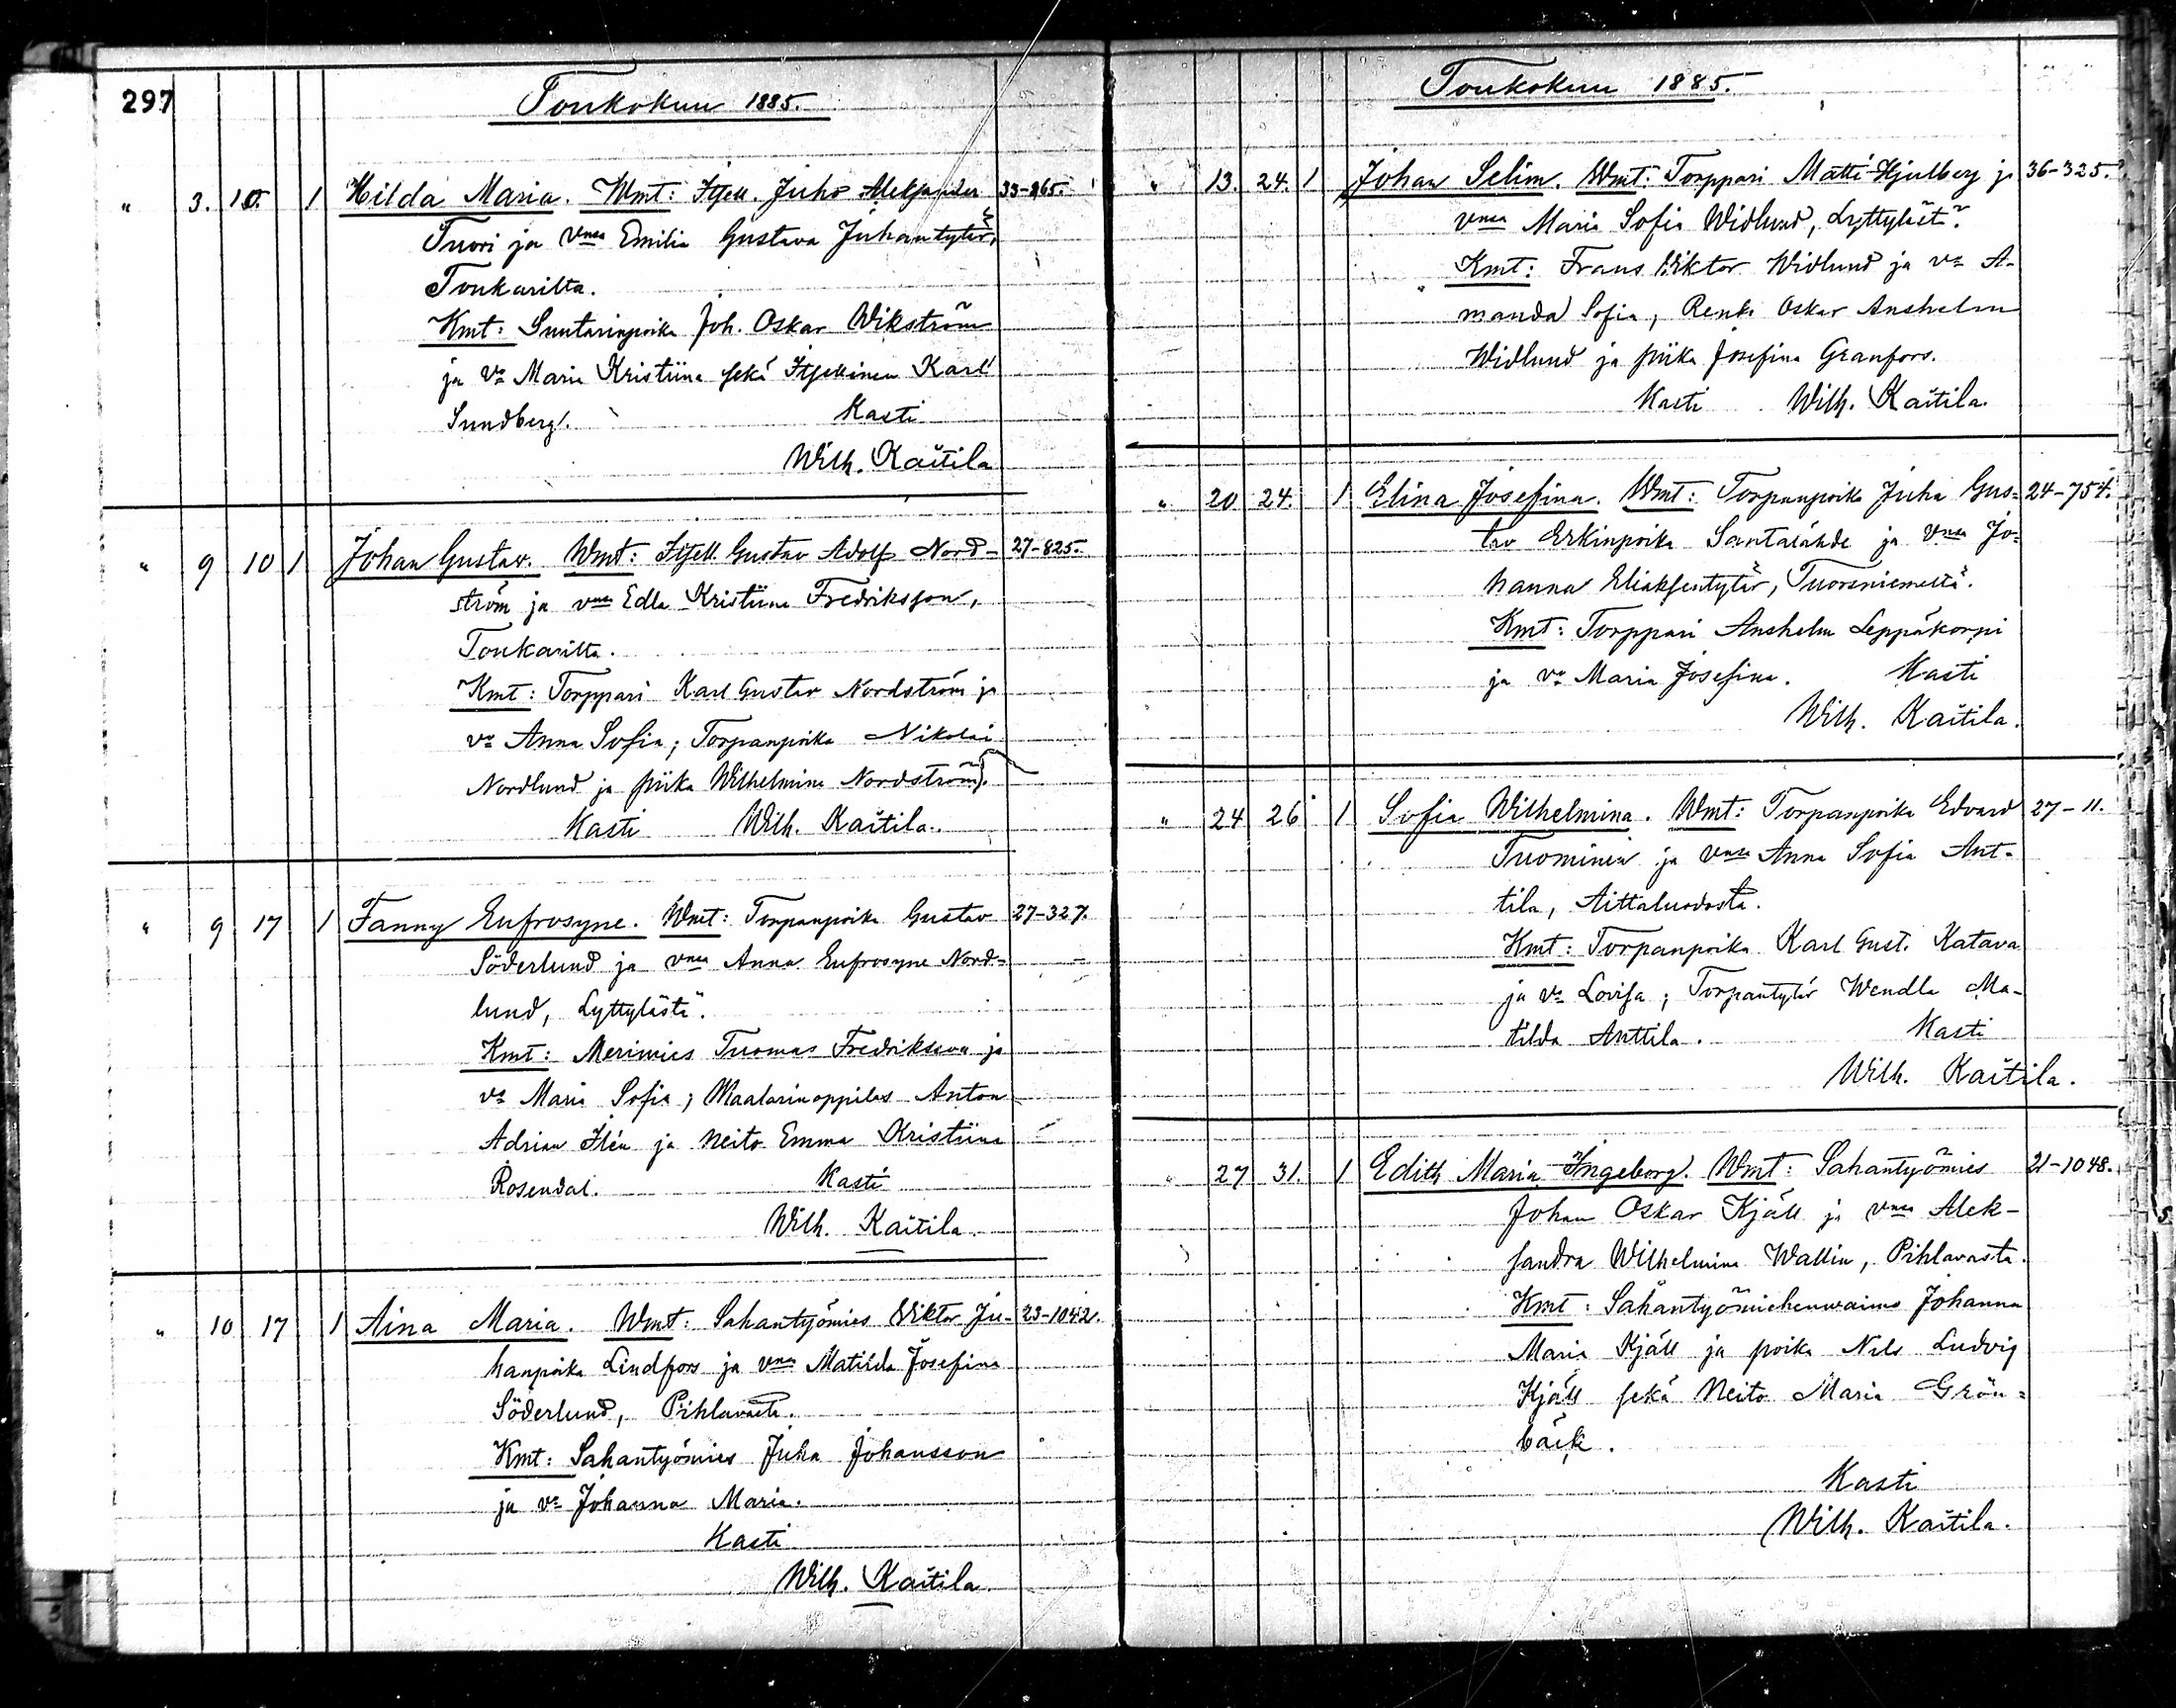 297
Toukokuu 1885.
" 3. 10. 1 Hilda Maria. Wmt: Itsell. Juho Aleksander 33-865.
Tuori ja vmsa Emilia Gustava Juhantytär,
Toukarilta.
Kmt: Suutarinpoika Joh. Oskar Wikström
ja va Maria Kristiina sekä Itsellinen Karl
Sundberg. Kasti
Wilh. Kaitila
" 9 10 1 Johan Gustav. Wmt: Itsell. Gustav Adolf Nord- 27-825.
ström ja vmsa Edla Kristiina Fredriksson,
Toukarilta.
Kmt: Torppari Karl Gustav Nordström ja
va Anna Sofia; Torpanpoika Nikolai
Nordlund ja piika Wilhelmina Nordström.
Kasti Wilh. Kaitila.
" 9 17 1 Fanny Eufrosyne. Wmt: Torpanpoika Gustav 27-327.
Söderlund ja vmsa Anna Eufrosyne Nord-
lund, Lyttylästä.
Kmt: Merimies Tuomas Fredriksson ja
va Maria Sofia; Maalarinoppilas Anton
Adrian Ilén ja Neito Emma Kristiina
Rosendal. Kasti
Wilh. Kaitila.
" 10 17 1 Aina Maria. Wmt: Sahantyömies Viktor Ju- 23-1042.
hanpoika Lindfors ja vmsa Matilda Josefina
Söderlund, Pihlavasta.
Kmt: Sahantyömies Juha Johansson
ja va Johanna Maria.
Kasti
Wilh. Kaitila.
Toukokuu 1885.
" 13. 24. 1 Johan Selim. Wmt: Torppari Matti Hjulberg ja 36-325.
vmsa Maria Sofia Widlund, Lyttylästä.
Kmt: Frans Viktor Widlund ja va A-
manda Sofia, Renki Oskar Anshelm
Widlund ja piika Josefina Granfors.
Kasti Wilh. Kaitila.
" 20 24. 1 Elina Josefina. Wmt: Torpanpoika Juha Gus= 24-754.
tav Erkinpoika Santalähde ja vmsa Jo=
hanna Eliaksentytär, Tuorsniemestä.
Kmt: Torppari Anshelm Leppäkorpi
ja va Maria Josefina. Kasti
Wilh. Kaitila.
" 24 26 1 Sofia Wilhelmina. Wmt: Torpanpoika Edvard 27-11.
Tuominen ja vmsa Anna Sofia Ant-
tila, Aittaluodosta.
Kmt: Torpanpoika Karl Gust. Katava
ja va Lovisa; Torpantytär Wendla Ma-
tilda Anttila. Kasti
Wilh. Kaitila.
" 27 31. 1 Edith Maria Ingeborg. Wmt: Sahantyömies 21-1048.
Johan Oskar Kjäll ja vmsa Alek-
sandra Wilhelmina Wallin, Pihlavasta.
Kmt: Sahantyömiehenwaimo Johanna
Maria Kjäll ja poika Nils Ludvig
Kjäll sekä Neito Maria Grön=
bäck.
Kasti
Wilh. Kaitila.